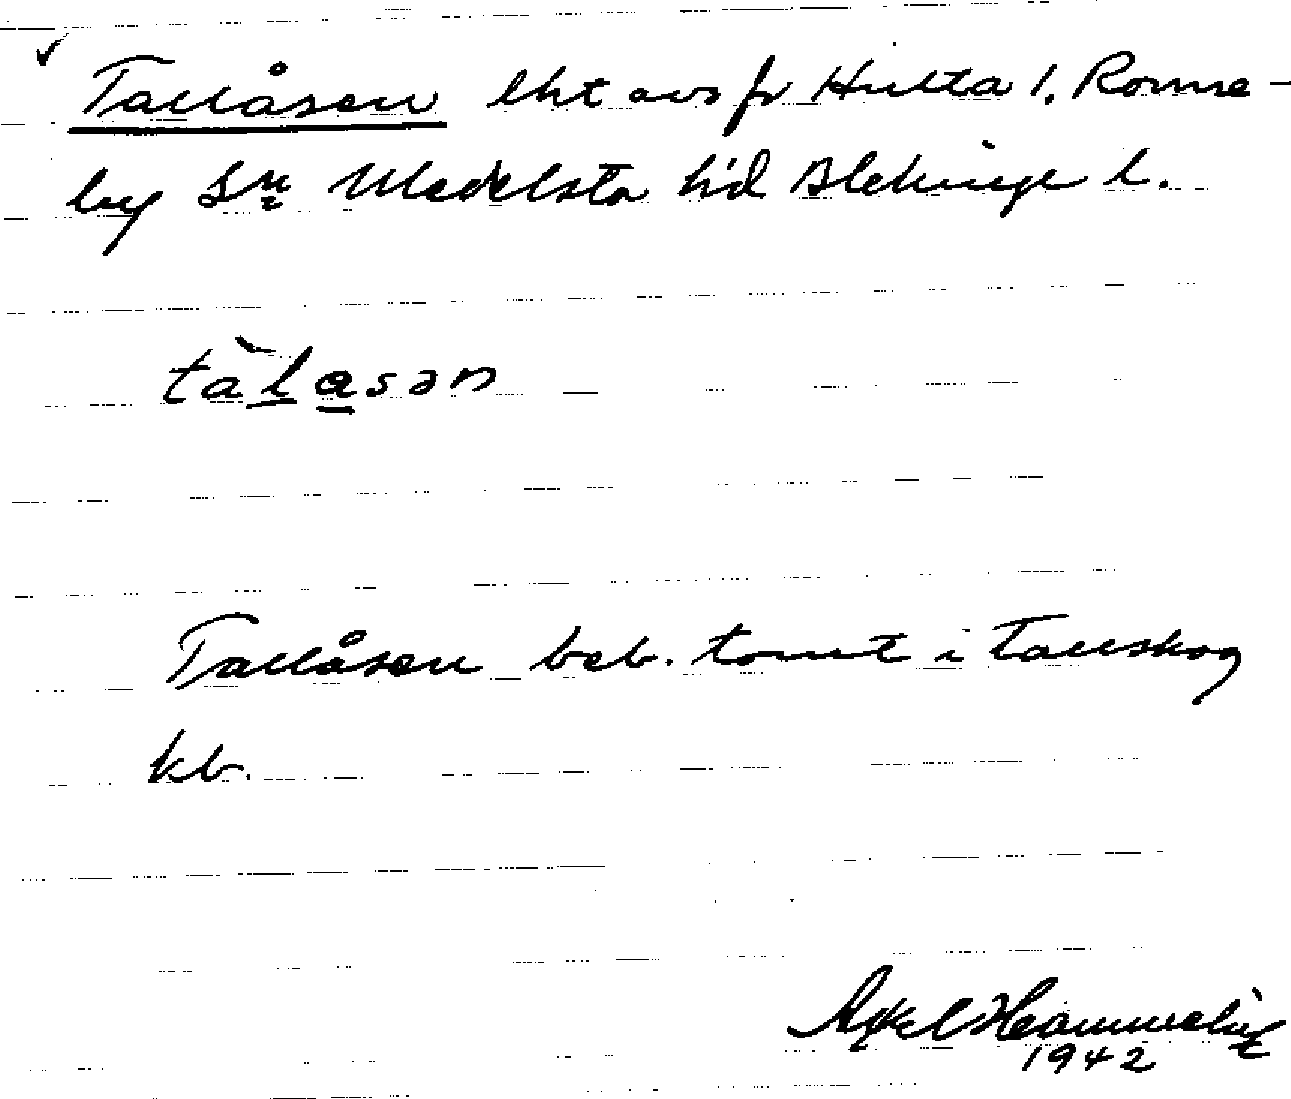 Tallåsen lht avs fr Hulta 1, Ronne-
by Sn Medelsta hd Blekinge l.
tàlasən
Tallåsen beb. tomt i tallskog
kb.
Axel
1942